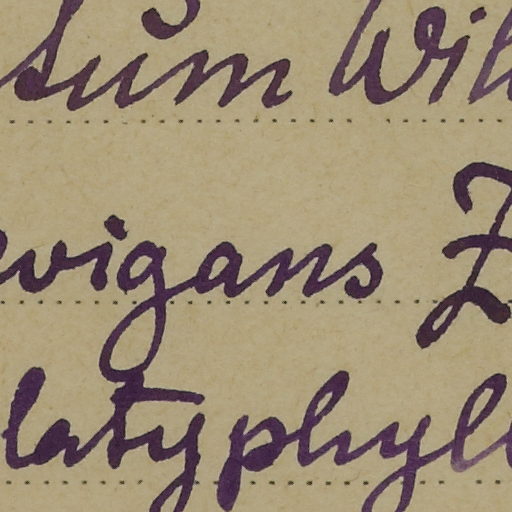 sum Wil
evigans Z
latyphyll